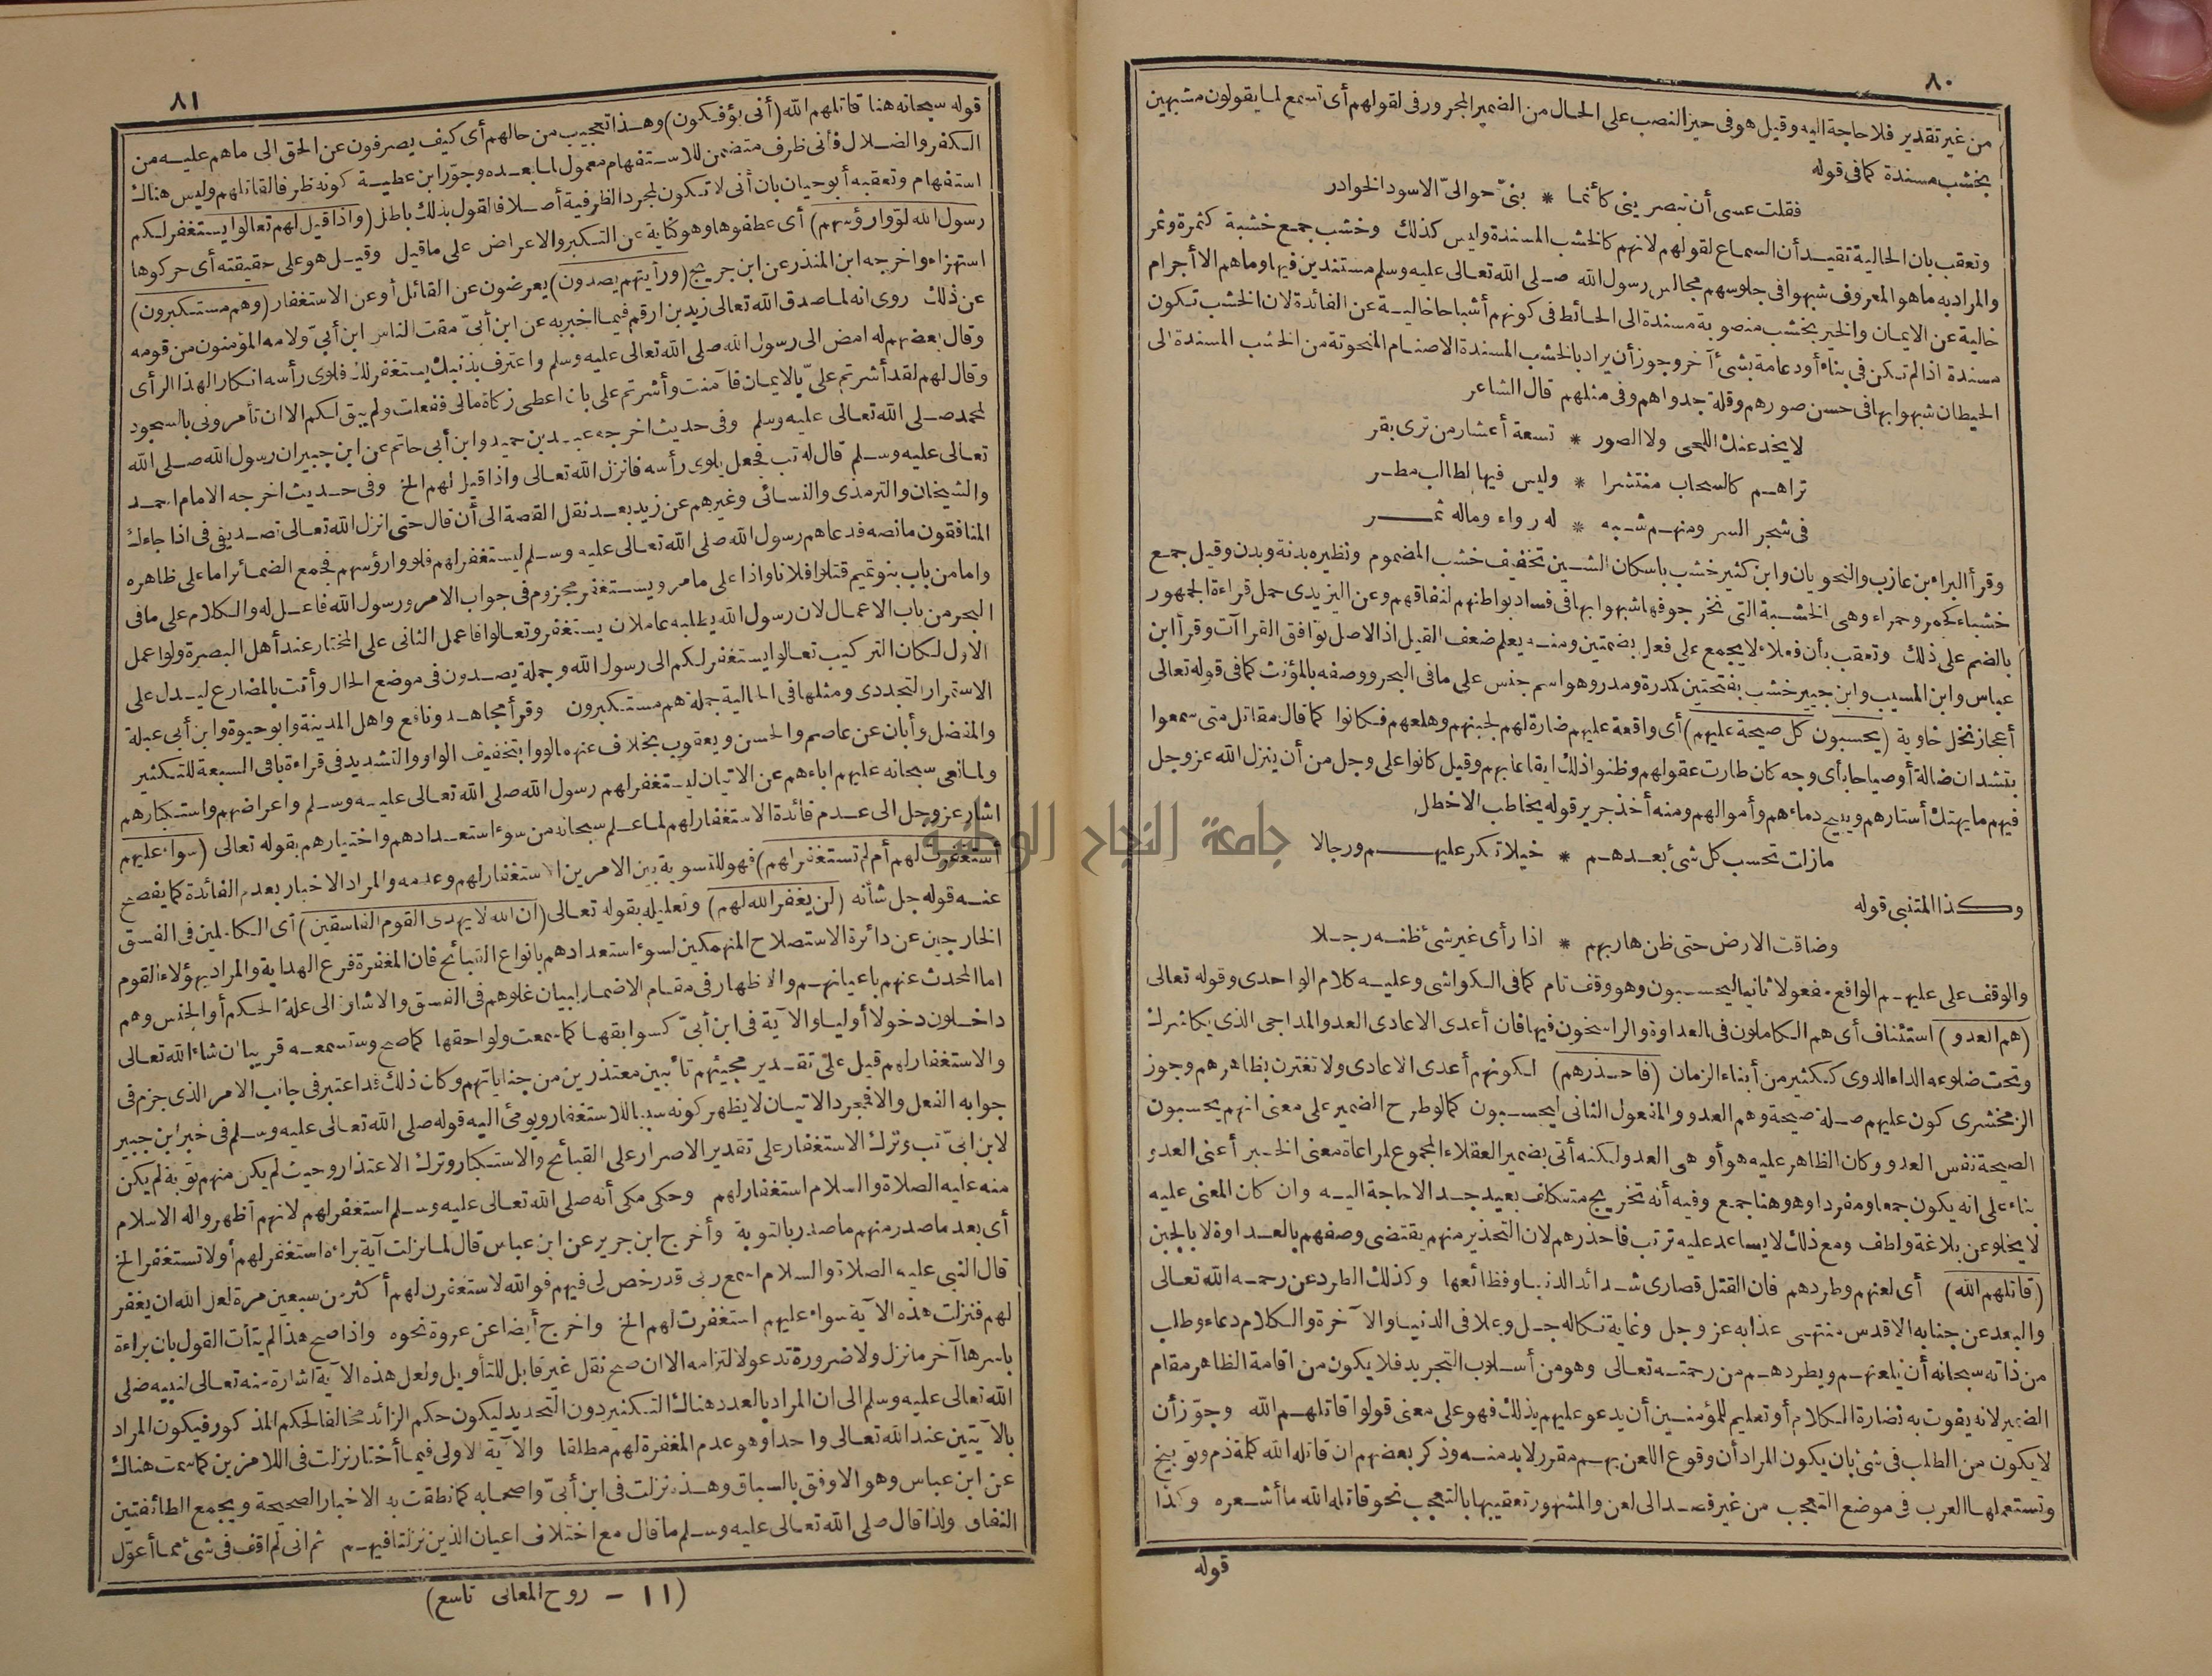 ٨٠
من غير تقدير فلا حاجة اليه وقيل هو في حيز النصب على الحال من الضمير المجرور في لقولهم أى تسمع لما يقولون مشبهين
بخشب مسندة كما في قوله
فقلت عسى أن تبصريني كأنما * بنىّ حوالىّ الاسود الخوادر
وتعقب بان الحالية تفيد أن السماع لقولهم لانهم كالخشب المسندة وليس كذلك وخشب جمع خشبة كثمرة وثمر
والمراد به ما هو المعروف شبهوا في جلوسهم مجالس رسول الله صلى الله تعالى عليه وسلم مستندين فيها وماهم الا أجرام
خالية عن الايمان والخير بخشب منصوبة مسندة الى الحائط في كونهم أشباحا خالية عن الفائدة لان الخشب تكون
مسندة اذا لم تكن في بناء أو دعامة بشئ آخر وجوز أن يراد بالخشب المسندة الاصنام المنحوتة من الخشب المسندة الى
الحيطان شبهوا بها في حسن صورهم وقلة جدواهم وفي مثلهم قال الشاعر
لا يخدعنك اللحى ولا الصور * تسعة أعشار من ترى بقر
تراهم كالسحاب منتشرا * وليس فيها لطالب مطر
في شجر السر ومنهم شبه * له رواء وماله ثمر
وقرأ البراء بن عازب والنحويان وابن كثير خشب باسكان الشين تخفيف خشب المضموم ونظيره بدنة وبدن وقيل جمع
خشباء كحمر وحمراء وهى الخشبة التى نخر جوفها شبهوا بها في فساد بواطنهم لنفاقهم وعن اليزيدى حمل قراءة الجمهور
بالضم على ذلك وتعقب بأن فعلاء لا يجمع على فعل بضمتين ومنه يعلم ضعف القيل اذ الاصل توافق القراآت وقرأ ابن
عباس وابن المسيب وابن جبير خشب بفتحتين كمدرة ومدر وهو اسم جنس على ما في البحر ووصفه بالمؤنث كما في قوله تعالى
أعجاز نخل خاوية (يحسبون كل صيحة عليهم) أى واقعة عليهم ضارة لهم لجبنهم وهلعهم فكانوا كما قال مقاتل متى سمعوا
بنشدان ضالة أو صياحا بأى وجه كان طارت عقولهم وظنوا ذلك ايقاعا بهم وقيل كانوا على وجل من أن ينزل الله عز وجل
فيهم ما يهتك أستارهم ويبيح دماءهم وأموالهم ومنه أخذ جرير قوله يخاطب الاخطل
مازلت تحسب كل شئ بعدهم * خيلا تكر عليهم ورجالا
وكذا المتنبي قوله
وضاقت الارض حتى ظن هاربهم * اذا رأى غير شئ ظنه رجلا
والوقف على عليهم الواقع مفعولا ثانيا ليحسبون وهو وقف تام كما في الكواشى وعليه كلام الواحدى وقوله تعالى
(هم العدو) استئناف أى هم الكاملون في العداوة والراسخون فيها فان أعدى الاعادى العدو المداجى الذى يكاشرك
وتحت ضلوعه الداء الدوى ككثير من أبناء الزمان (فاحذرهم) لكونهم أعدى الاعادى ولا تغترن بظاهرهم وجوز
الزمخشرى كون عليهم صلة صيحة وهم العدو والمفعول الثانى ليحسبون كما لو طرح الضمير على معنى انهم يحسبون
الصيحة نفس العدو وكان الظاهر عليه هو أو هى العدو لكنه أتى بضمير العقلاء المجموع لمراعاة معنى الخبر أعنى العدو
بناء على انه يكون جمعا ومفردا وهو هنا جمع وفيه أنه تخريج متكلف بعيد جدا لا حاجة اليه وان كان المعنى عليه
لا يخلو عن بلاغة ولطف ومع ذلك لا يساعد عليه ترتب فاحذرهم لان التحذير منهم يقتضى وصفهم بالعداوة لا بالجبن
(قاتلهم الله) أى لعنهم وطردهم فان القتل قصارى شدائد الدنيا وفظائعها وكذلك الطرد عن رحمة الله تعالى
والبعد عن جنابه الاقدس منتهى عذابه عز وجل وغاية نكاله جل وعلا في الدنيا والآخرة والكلام دعاء وطلب
من ذاته سبحانه أن يلعنهم ويطردهم من رحمته تعالى وهو من أسلوب التجريد فلا يكون من اقامة الظاهر مقام
الضمير لانه يفوت به نضارة الكلام أو تعليم للمؤمنين أن يدعو عليهم بذلك فهو على معنى قولوا قاتلهم الله وجوّز أن
لا يكون من الطلب في شئ بان يكون المراد أن وقوع اللعن بهم مقرر لا بد منه وذكر بعضهم ان قاتله الله كلمة ذم وتوبيخ
وتستعملها العرب في موضع التعجب من غير قصد الى لعن والمشهور تعقيبها بالتعجب نحو قاتله الله ما أشعره وكذا
قوله
٨١
قوله سبحانه هنا قاتلهم الله (أنى يؤفكون) وهذا تعجيب من حالهم أى كيف يصرفون عن الحق الى ماهم عليه من
الكفر والضلال فأنى ظرف متضمن للاستفهام معمول لما بعده وجوّز ابن عطية كونه ظرفا لقاتلهم وليس هناك
استفهام وتعقبه أبو حيان بان أنى لا تكون لمجرد الظرفية أصلا فالقول بذلك باطل (واذا قيل لهم تعالوا يستغفر لكم
رسول الله لووا رؤسهم) أى عطفوها وهو كناية عن التكبر والاعراض على ما قيل وقيل هو على حقيقته أى حركوها
استهزاء واخرجه ابن المنذر عن ابن جريج (ورأيتهم يصدون) يعرضون عن القائل أو عن الاستغفار (وهم مستكبرون)
عن ذلك روى انه لما صدق الله تعالى زيد بن ارقم فيما اخبر به عن ابن أبىّ مقت الناس ابن أبىّ ولامه المؤمنون من قومه
وقال بعضهم له امض الى رسول الله صلى الله تعالى عليه وسلم واعترف بذنبك يستغفر لك فلوى رأسه انكارا لهذا الرأى
وقال لهم لقد أشرتم علىّ بالايمان فآمنت وأشرتم على بان اعطى زكاة مالى ففعلت ولم يبق لكم الا ان تأمرونى بالسجود
لمحمد صلى الله تعالى عليه وسلم وفي حديث اخرجه عبد بن حميد وابن أبى حاتم عن ابن جبير ان رسول الله صلى الله
تعالى عليه وسلم قال له تب فجعل يلوى رأسه فانزل الله تعالى واذا قيل لهم الخ وفي حديث اخرجه الامام احمد
والشيخان والترمذى والنسائى وغيرهم عن زيد بعد نقل القصة الى أن قال حتى انزل الله تعالى تصديقى في اذا جاءك
المنافقون مانصه فدعاهم رسول الله صلى الله تعالى عليه وسلم ليستغفر لهم فلووا رؤسهم فجمع الضمائر اما على ظاهره
واما من باب بنو تميم قتلوا فلانا واذا على ما مر ويستغفر مجزوم في جواب الامر ورسول الله فاعل له والكلام على ما في
البحر من باب الاعمال لان رسول الله يطلبه عاملان يستغفر وتعالوا فاعمل الثانى على المختار عند أهل البصرة ولو اعمل
الاول لكان التركيب تعالوا يستغفر لكم الى رسول الله وجملة يصدون في موضع الحال وأتت بالمضارع ليدل على
الاستمرار التجددى ومثلها في الحالية جملة هم مستكبرون وقرأ مجاهد ونافع واهل المدينة وابو حيوة وابن أبى عبلة
والمفضل وأبان عن عاصم والحسن ويعقوب بخلاف عنهما لووا بتخفيف الواو والتشديد في قراءة باقى السبعة للتكثير
ولما نعى سبحانه عليهم اباءهم عن الاتيان ليستغفر لهم رسول الله صلى الله تعالى عليه وسلم واعراضهم واستكبارهم
اشار عز وجل الى عدم فائدة الاستغفار لهم لما علم سبحانه من سوء استعدادهم واختيارهم بقوله تعالى (سواء عليهم
أستغفرت لهم أم لم تستغفر لهم) فهو للتسوية بين الامرين الاستغفار لهم وعدمه والمراد الاخبار بعدم الفائدة كما يفصح
عنه قوله جل شأنه (لن يغفر الله لهم) وتعليله بقوله تعالى (ان الله لا يهدى القوم الفاسقين) أى الكاملين في الفسق
الخارجين عن دائرة الاستصلاح المنهمكين لسوء استعدادهم بانواع القبائح فان المغفرة فرع الهداية والمراد بهؤلاء القوم
اما المحدث عنهم باعيانهم والاظهار في مقام الاضمار لبيان غلوهم في الفسق والاشارة الى علة الحكم أو الجنس وهم
داخلون دخولا أوليا والآية في ابن أبىّ كسوابقها كما سمعت ولواحقها كما صح وستسمعه قريبا ان شاء الله تعالى
والاستغفار لهم قيل على تقدير مجيئهم تائبين معتذرين من جناياتهم وكان ذلك قد اعتبر في جانب الامر الذى جزم في
جوابه الفعل والا فمجرد الاتيان لا يظهر كونه سببا للاستغفار ويومئ اليه قوله صلى الله تعالى عليه وسلم في خبر ابن جبير
لابن ابىّ تب وترك الاستغفار على تقدير الاصرار على القبائح والاستكبار وترك الاعتذار وحيث لم يكن منهم توبة لم يكن
منه عليه الصلاة والسلام استغفار لهم وحكى مكى أنه صلى الله تعالى عليه وسلم استغفر لهم لانهم أظهروا له الاسلام
أى بعد ما صدر منهم ما صدر بالتوبة وأخرج ابن جرير عن ابن عباس قال لما نزلت آية براءة استغفر لهم أو لا تستغفر الخ
قال النبي عليه الصلاة والسلام اسمع ربى قد رخص لى فيهم فوالله لاستغفرن لهم أكثر من سبعين مرة لعل الله ان يغفر
لهم فنزلت هذه الآية سواء عليهم استغفرت لهم الخ واخرج أيضا عن عروة نحوه واذا صح هذا لم يتأت القول بان براءة
باسرها آخر ما نزل ولا ضرورة تدعو لالتزامه الا ان صح نقل غير قابل للتأويل ولعل هذه الآية اشارة منه تعالى لنبيه صلى
الله تعالى عليه وسلم الى ان المراد بالعدد هناك التكثير دون التحديد ليكون حكم الزائد مخالفا لحكم المذكور فيكون المراد
بالآيتين عند الله تعالى واحدا وهو عدم المغفرة لهم مطلقا والآية الاولى فيما أختار نزلت في اللامزين كما سمعت هناك
عن ابن عباس وهو الاوفق بالسباق وهذه نزلت في ابن أبىّ واصحابه كما نطقت به الاخبار الصحيحة ويجمع الطائفتين
النفاق ولذا قال صلى الله تعالى عليه وسلم ما قال مع اختلاف اعيان الذين نزلتا فيهم ثم انى لم اقف في شئ مما أعوّل
(١١ - روح المعانى تاسع)
جامعة النجاح الوطنية